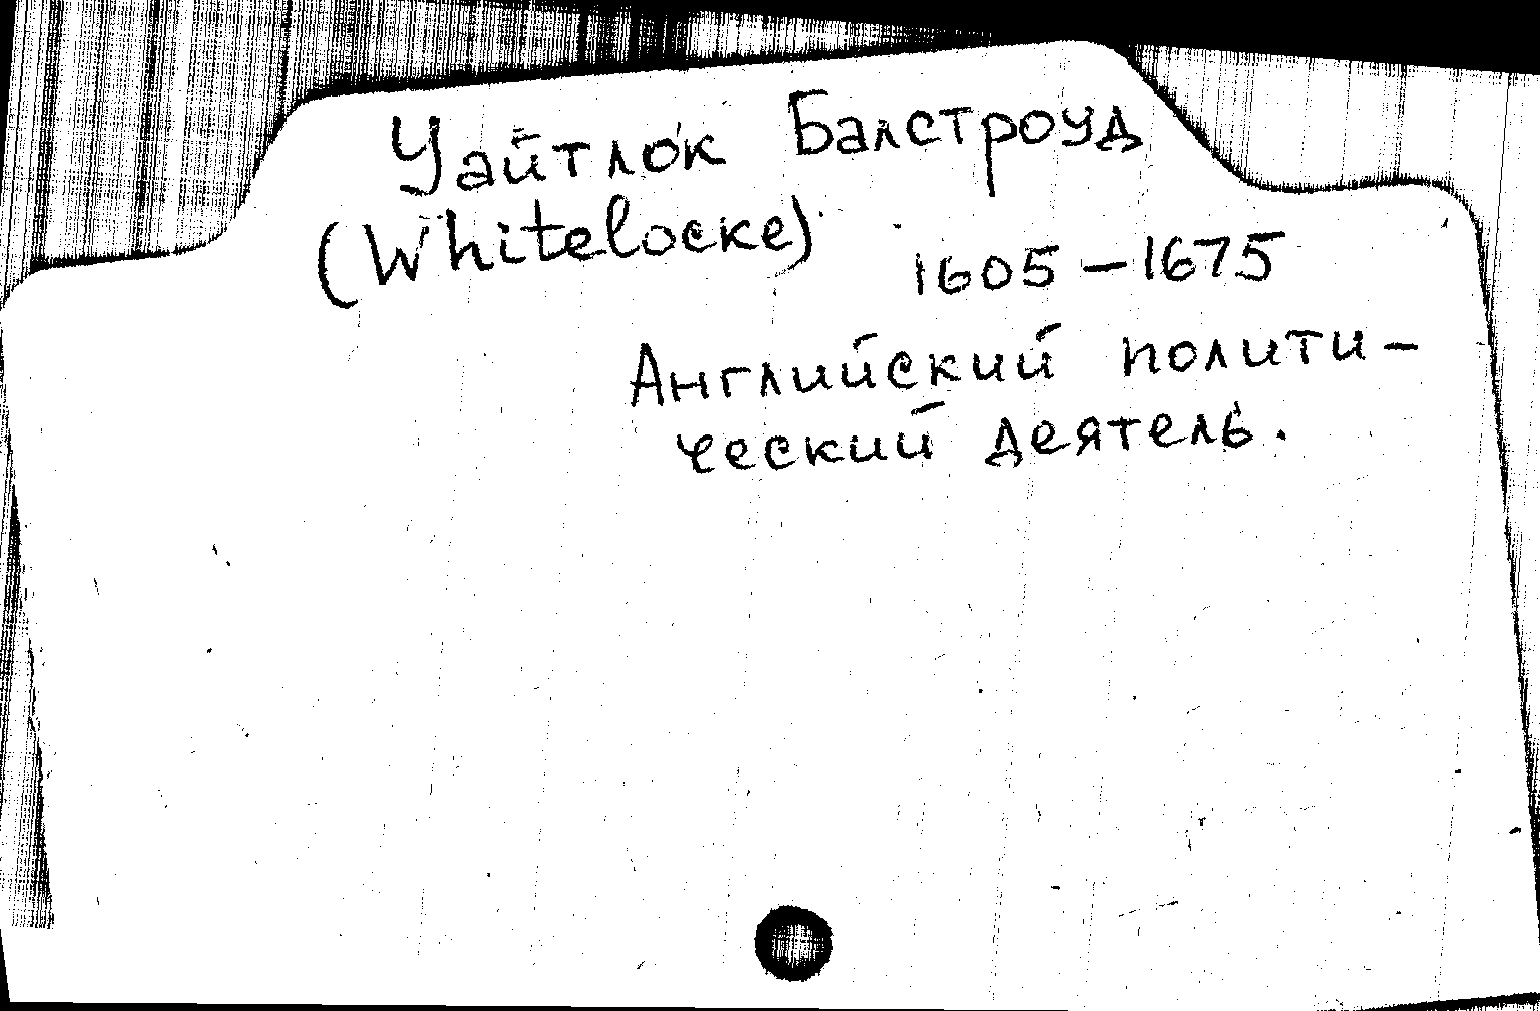 Уайтлок Балстроуд
(Whitelocke)
1605 – 1675
Английский полити-
ческий деятель.